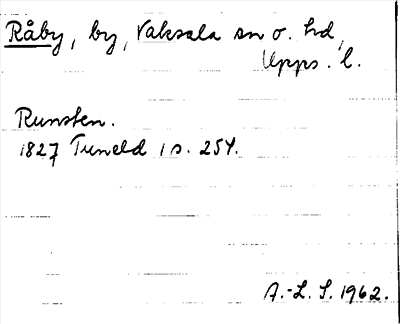 Råby, by, Vaksala sn o. hd,
Upps. l.
Runsten.
1827 Tuneld 1 s. 254.
A.-L. S. 1962.